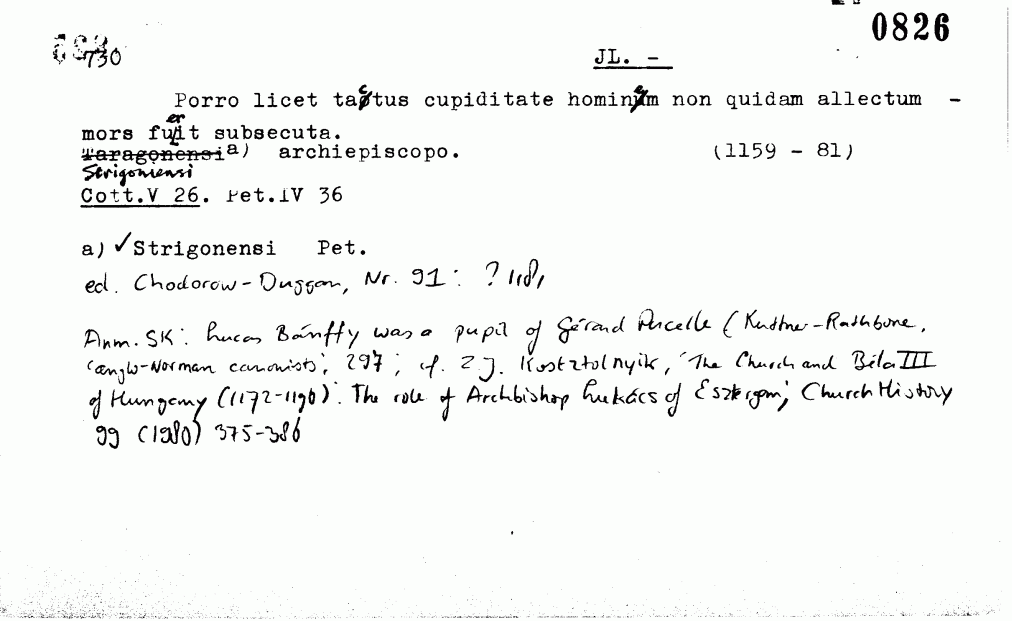 0826
730 JL. -
Porro licet tactus cupiditate hominem non quidam allectum -
mors fuerit subsecuta.
Taragonensi a) archiepiscopo. (1159 - 81)
Strigoniensi
Cott.V 26. Pet.IV 36
a) ✓Strigonensi Pet.
ed. Chodorow-Duggan, Nr. 91: ? 1181
Anm. SK: Lucas Bánffy was a pupil of Gérard Pucelle (Kuttner-Rathbone,
'anglo-Norman canonists', 297; cf. Z.J. Kosztolnyik, 'The Church and Béla III
of Hungary (1172-1196): The role of Archbishop Lukács of Esztergom', Church History
99 (1980) 375-386